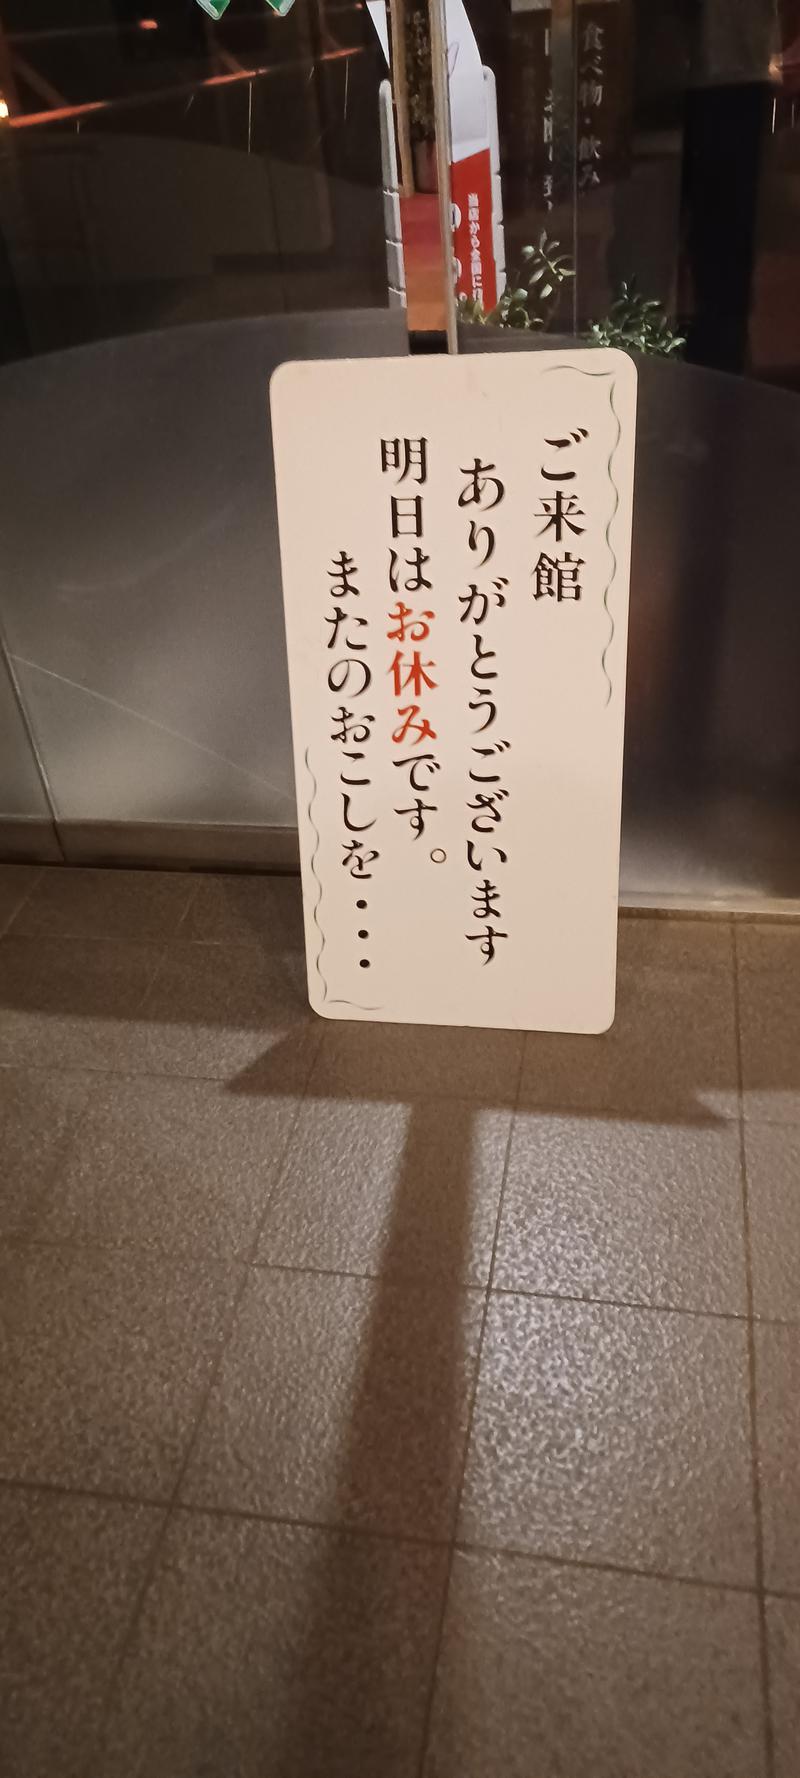 ご来館
ありがとうございます
明日はお休みです。
またのおこしを・・・
食べ物・飲み
当店から全国に